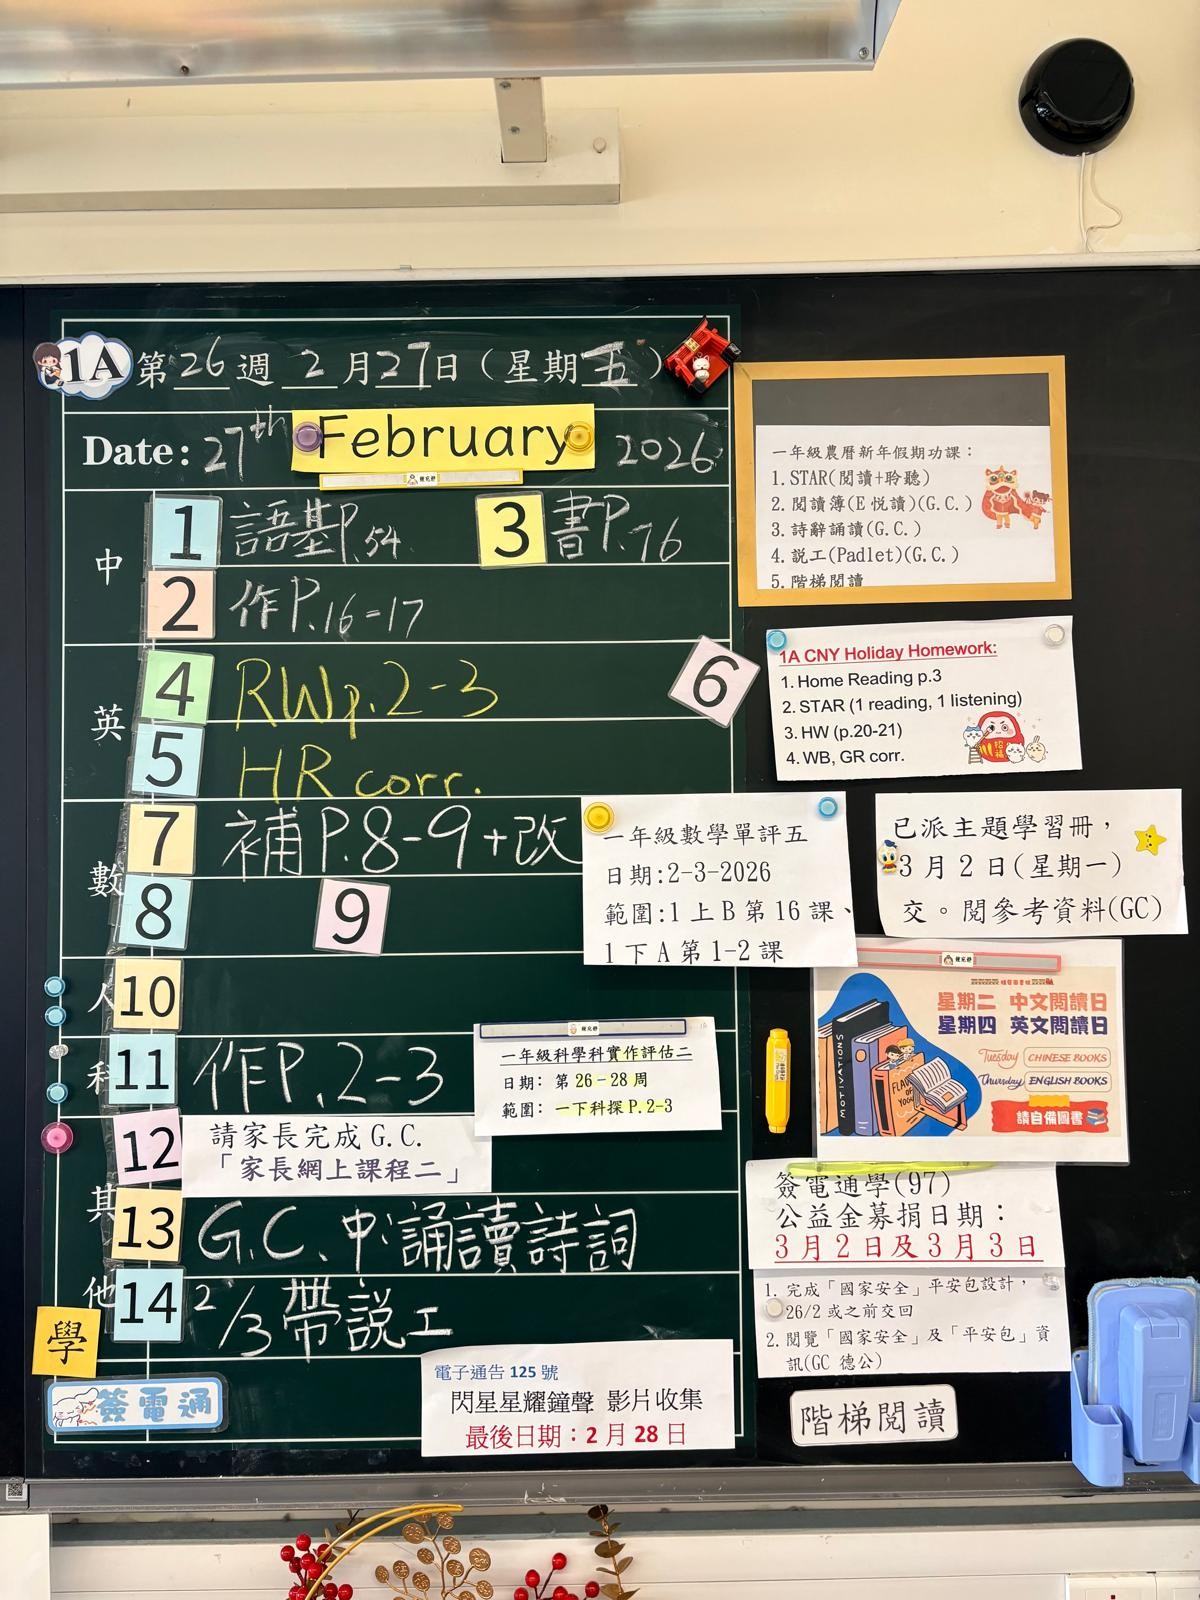 1A 第26週 2月27日(星期五)
Date: 27th February 2026
中
1 語基P.54
3 書P.76
2 作P.16-17
英
4 RWp.2-3
6
5 HR corr.
數
7 補P.8-9+改
8
9
人
10
科
11 作P.2-3
12 請家長完成 G.C.
「家長網上課程二」
其
他
13 G.C.中:誦讀詩詞
14 2/3帶説工
學
簽電通
一年級農曆新年假期功課:
1. STAR(閱讀+聆聽)
2. 閱讀簿(E 悅讀)(G.C.)
3. 詩辭誦讀(G.C.)
4. 説工(Padlet)(G.C.)
5. 階梯閱讀
1A CNY Holiday Homework:
1. Home Reading p.3
2. STAR (1 reading, 1 listening)
3. HW (p.20-21)
4. WB, GR corr.
招福
一年級數學單評五
日期:2-3-2026
範圍:1 上 B 第 16 課、
1 下 A 第 1-2 課
已派主題學習冊，
3 月 2 日(星期一)
交。閱參考資料(GC)
一年級科學科實作評估二
日期: 第 26-28 周
範圍: 一下科探 P.2-3
1A
星期二 中文閱讀日
星期四 英文閱讀日
Tuesday CHINESE BOOKS
Thursday ENGLISH BOOKS
請自備圖書
MOTIVATIONS
簽電通學(97)
公益金募捐日期：
3 月 2 日及 3 月 3 日
1. 完成「國家安全」平安包設計，
26/2 或之前交回
2. 閱覽「國家安全」及「平安包」資
訊(GC 德公)
電子通告 125 號
閃星星耀鐘聲 影片收集
最後日期：2 月 28 日
階梯閱讀